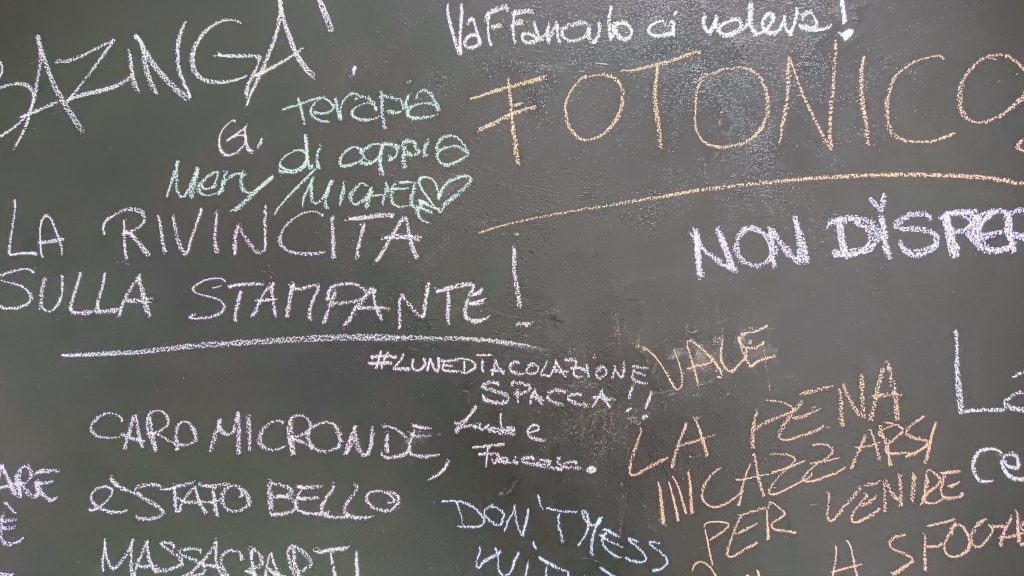 BAZINGA!
Vaffanculo ci voleva!
FOTONICO
terapia
di coppia
G.
Mery/MICHE
LA RIVINCITA
SULLA STAMPANTE!
NON DISPER
#LUNEDIACOLAZIONE
SPACCA!!
Ludo e
VALE
LA PENA
INCAZZARSI
PER VENIRE
A SFOGA
La
ce
CARO MICRONDE,
È STATO BELLO
MASSACRARTI
ARE
È
DON'T MESS